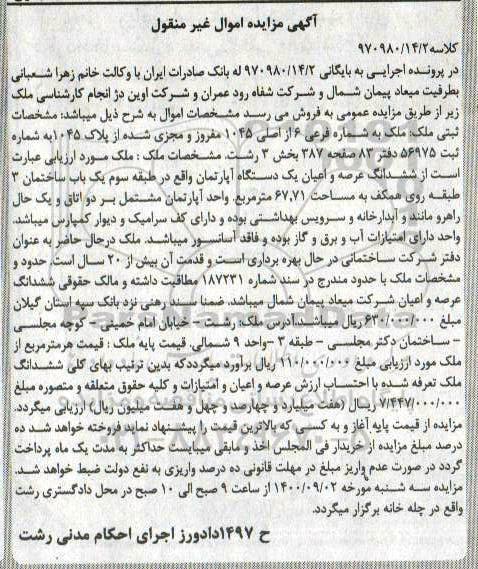 آگهی مزایده اموال غیر منقول
کلاسه۹۷۰۹۸۰/۱۴/۲
در پرونده اجرایی به بایگانی ۹۷۰۹۸۰/۱۴/۲ له بانک صادرات ایران با وکالت خانم زهرا شعبانی
بطرفیت میعاد پیمان شمال و شرکت شفاه رود عمران و شرکت اوین دژ انجام کارشناسی ملک
زیر از طریق مزایده عمومی به فروش می رسد مشخصات اموال به شرح ذیل میباشد: مشخصات
ثبتی ملک: ملک به شماره فرعی ۶ از اصلی ۱۰۴۵ مفروز و مجزی شده از پلاک ۱۰۴۵به شماره
ثبت ۵۶۹۷۵ دفتر ۸۳ صفحه ۳۸۷ بخش ۳ رشت. مشخصات ملک : ملک مورد ارزیابی عبارت
است از ششدانگ عرصه و اعیان یک دستگاه آپارتمان واقع در طبقه سوم یک باب ساختمان ۳
طبقه روی همکف به مساحت ۶۷,۷۱ مترمربع. واحد آپارتمان مشتمل بر دو اتاق و یک حال
راهرو مانند و آبدارخانه و سرویس بهداشتی بوده و دارای کف سرامیک و دیوار کمپارس میباشد.
واحد دارای امتیازات آب و برق و گاز بوده و فاقد آسانسور میباشد. ملک درحال حاضر به عنوان
دفتر شرکت ساختمانی در حال بهره برداری است و قدمت آن بیش از ۲۰ سال است. حدود و
مشخصات ملک با حدود مندرج در سند شماره ۱۸۷۲۳۱ مطاقبت داشته و مالک حقوقی ششدانگ
عرصه و اعیان شرکت میعاد پیمان شمال میباشد. ضمنا سند رهنی نزد بانک سپه استان گیلان
مبلغ ۶۳۰/۰۰۰/۰۰۰ ریال میباشد.آدرس ملک: رشت- خیابان امام خمینی- کوچه مجلسی
- ساختمان دکتر مجلسی - طبقه ۳ -واحد ۹ شمالی. قیمت پایه ملک : قیمت هرمترمربع از
ملک مورد ارزیابی مبلغ ۱۱۰/۰۰۰/۰۰۰ ریال برآورد میگرددکه بدین ترتیب بهای کلی ششدانگ
ملک تعرفه شده با احتساب ارزش عرصه و اعیان و امتیازات و کلیه حقوق متعلقه و متصوره مبلغ
۷/۴۴۷/۰۰۰/۰۰۰ ریال (هفت میلیارد و چهارصد و چهل و هفت میلیون ریال) ارزیابی میگردد.
مزایده از قیمت پایه آغاز و به کسی که بالاترین قیمت را پیشنهاد نماید فروخته خواهد شد ده
درصد مبلغ مزایده از خریدار فی المجلس اخذ و مابقی میبایست حداکثر به مدت یک ماه پرداخت
گردد در صورت عدم واریز مبلغ در مهلت قانونی ده درصد واریزی به نفع دولت ضبط خواهد شد.
مزایده سه شنبه مورخه ۱۴۰۰/۰۹/۰۲ از ساعت ۹ صبح الی ۱۰ صبح در محل دادگستری رشت
واقع در چله خانه برگزار میگردد.
ح ۱۴۹۷دادورز اجرای احکام مدنی رشت